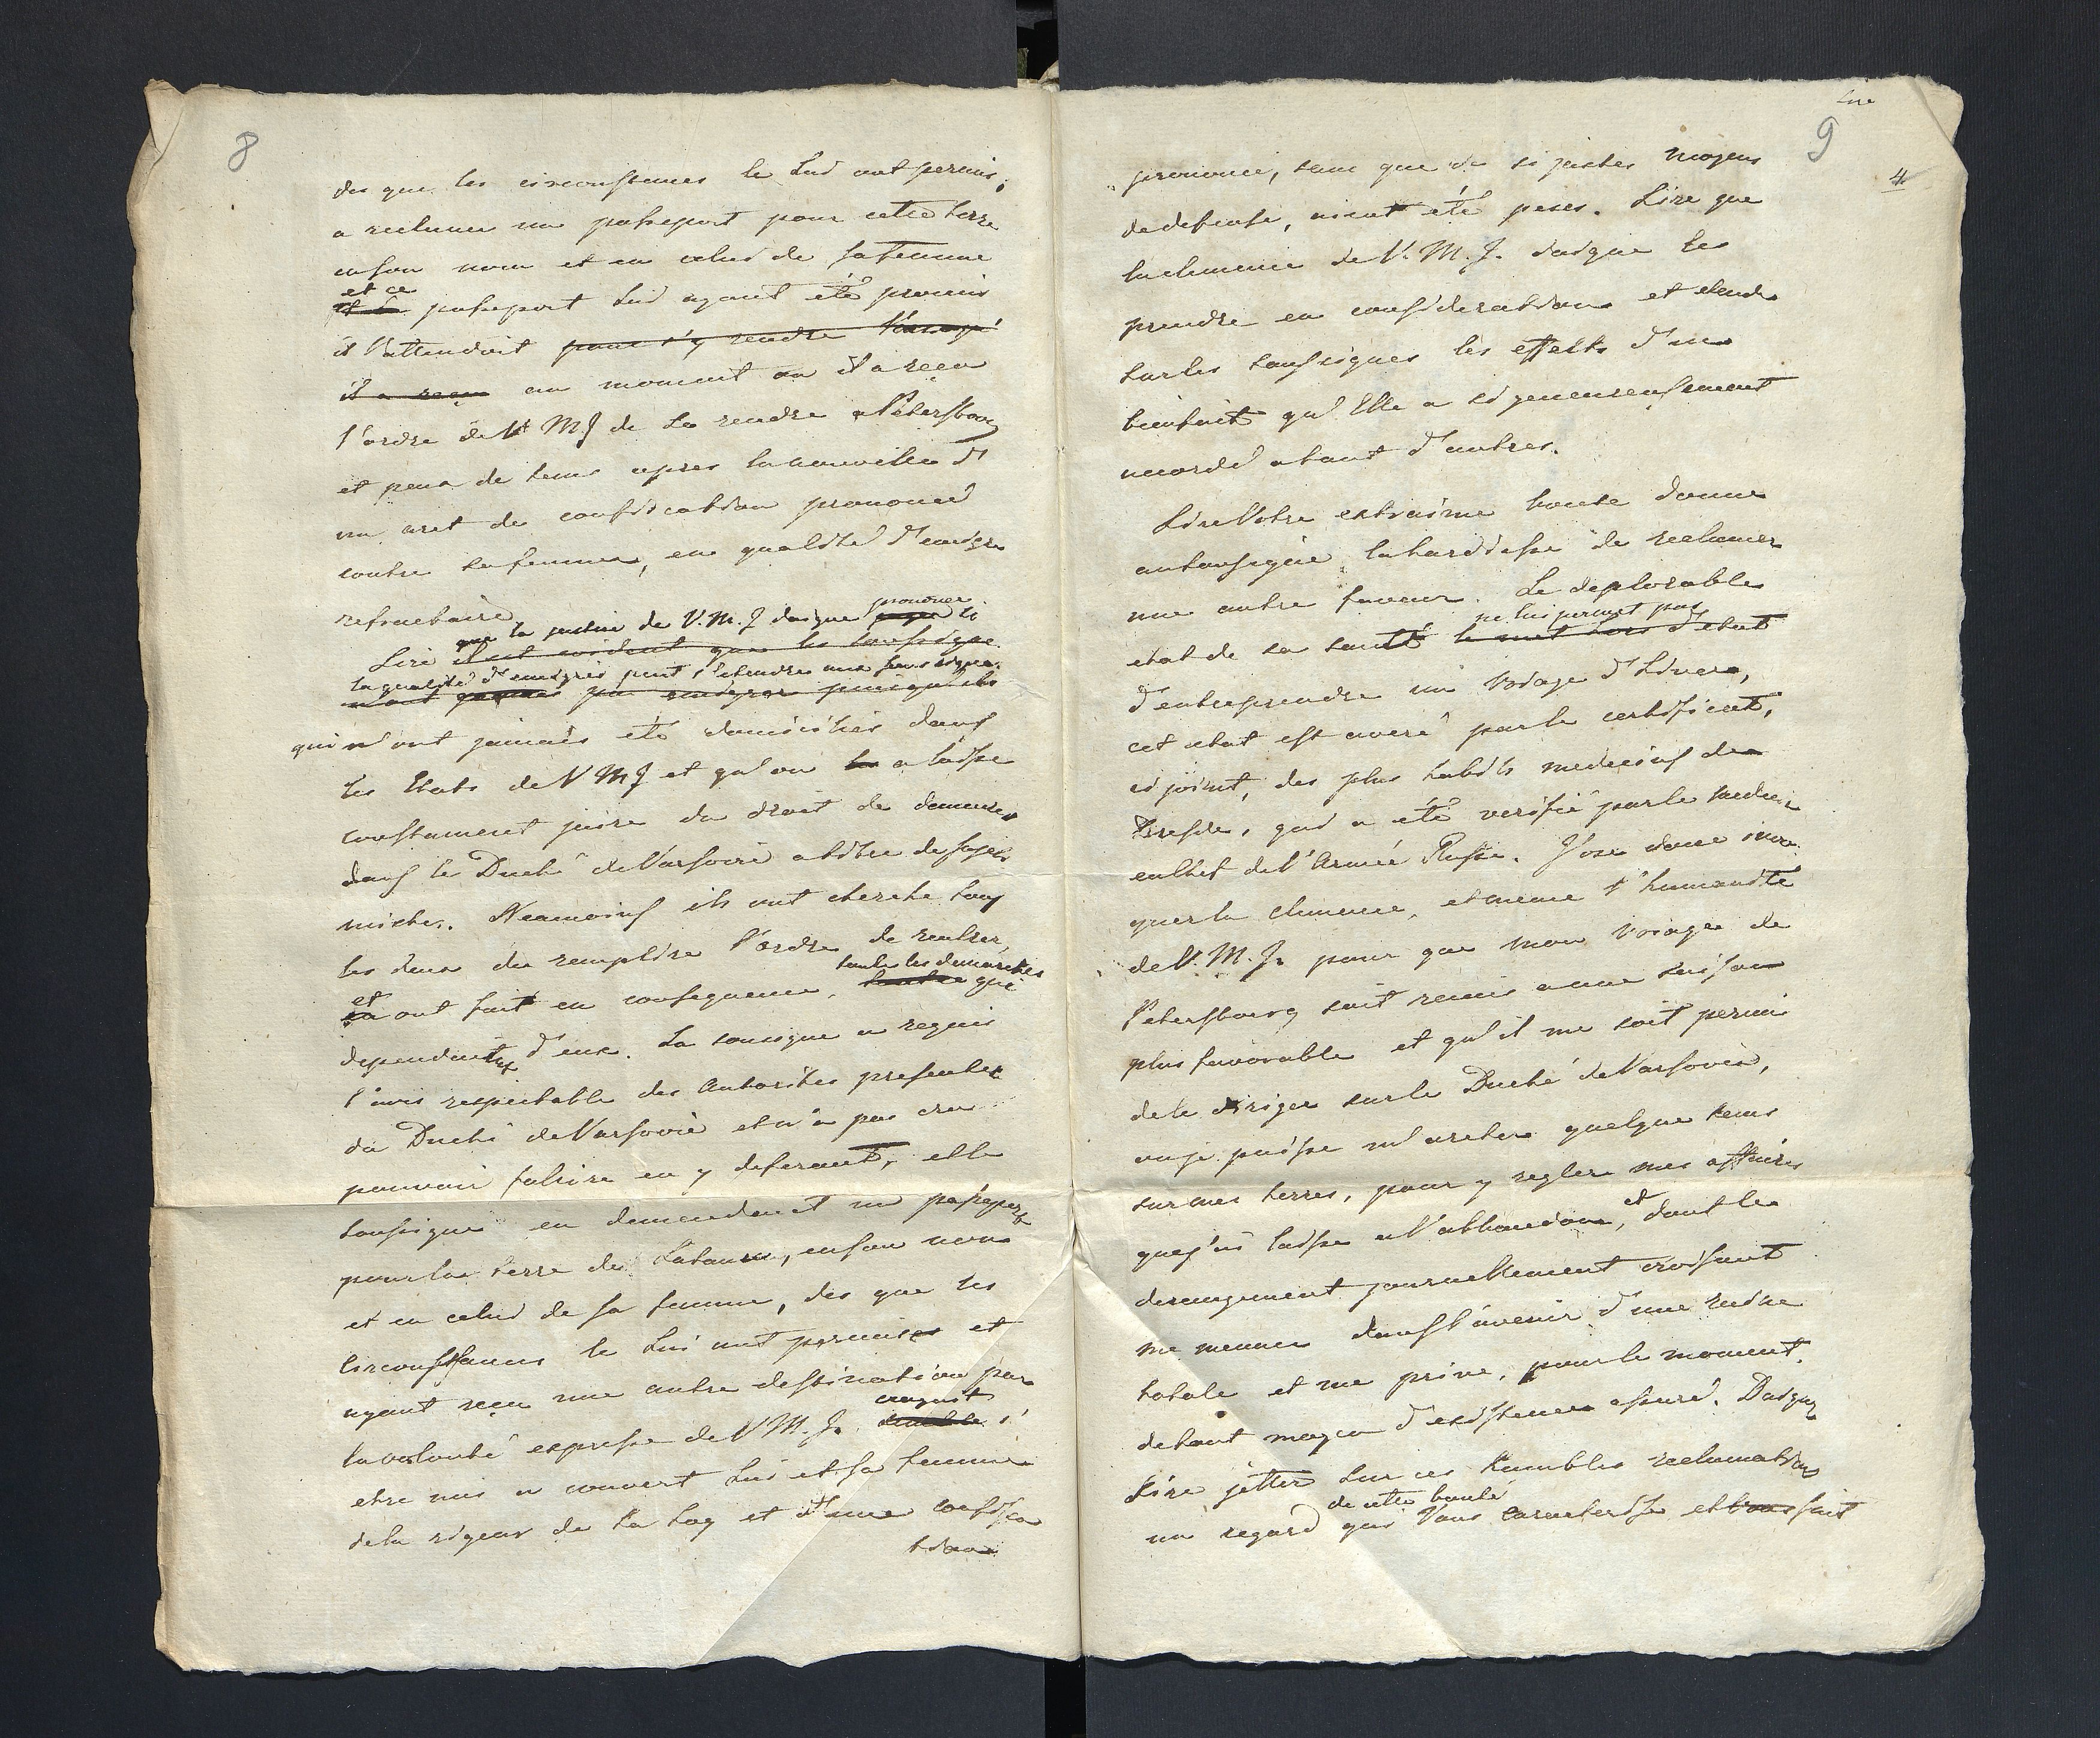 8
des que les circonstances le Lui ont permis,
a reclamer un passeport pour cette terre
en son nom et en celui de sa femme
et ce
passeport Lui ayant été promis
il l'attendoit pour s'y rendre
il a reçu au moment ou il a reçu
l'ordre de V M J de se rendre a Petersbourg
et peu de tems apres la nouvelle d'
un aret de confiscation prononcé
contre sa femme, en qualité d'emigré
refractaire.
que la justice de V. M. J daigne prononcer si
Sire il est evident que les soussignés
la qualité d'emigrés peut s'etendre aux soussignés
n'ont pu emigrer puisqu'ils
qui n'ont jamais été domiciliés dans
les Etats de V M J et qu'on a laisse
constament jouire du droit de demeurer
dans le Duché de Varsovie a titre de sujets
mixtes. Neamoins ils ont cherche tous
les deux de remplire l'ordre de rentrer,
toutes les demarches
et ont fait en consequence, qui
dependoient d'eux. La sousigne a requis
l'avis respectable des Autorites presentes
du Duché de Varsovie et n'a pas cru
pouvoir faliire en y deferant, elle
soussigné en demendant un passeport
pour la terre de, en son nom
et en celui de sa femme, des que les
circonstances le Lui ont permises et
ayant reçu une autre destination par
croyoit
la volonté expresse de V M. J. s'
etre mis a couvert Lui et sa femme
de la rigeur de la Loy et d'une confisca
tion
Sire
9
4
prononcé, sans que de si justes moyens
de defense, aient été peses. Sire que
la clemence de V. M. J. daigne les
prendre en consideration et etendre
sur les soussignes les effets d'un
bienfait qu'Elle a si genereusement
accordé a tant d'autres.
Sire Votre extraime bonté donne
au sousigné la hardiesse de reclamer
une autre faveur. Le deplorable
ne lui permet pas
etat de sa santé le met hors d'etat
d'entreprendre un voiage d'hiver,
cet etat est averé par le certificat,
ci joint, des plus habils medecins de
Dresde, qui a été verifié par le medecin
en chef de l'Armée Russe. J'ose donc invo
quer la clemence, et meme l'humanité
de V. M. J. pour que mon voiage de
Petersbourg soit remis a une saison
plus favorable et qu'il me soit permi
de le diriger sur le Duché de Varsovie,
ou je puisse m'areter quelque tems
sur mes terres, pour y regler mes affaires
que j'ai laisse a l'abbandon, et dont le
derangement journellement croissant
me menace dans l'avenir d'une ruine
totale et me prive, pour le moment,
de tout moyen d'existence assuré. Daignez
Sire jetter sur ces humbles reclamations
de cette bonté
un regard qui Vous caracterise et fait